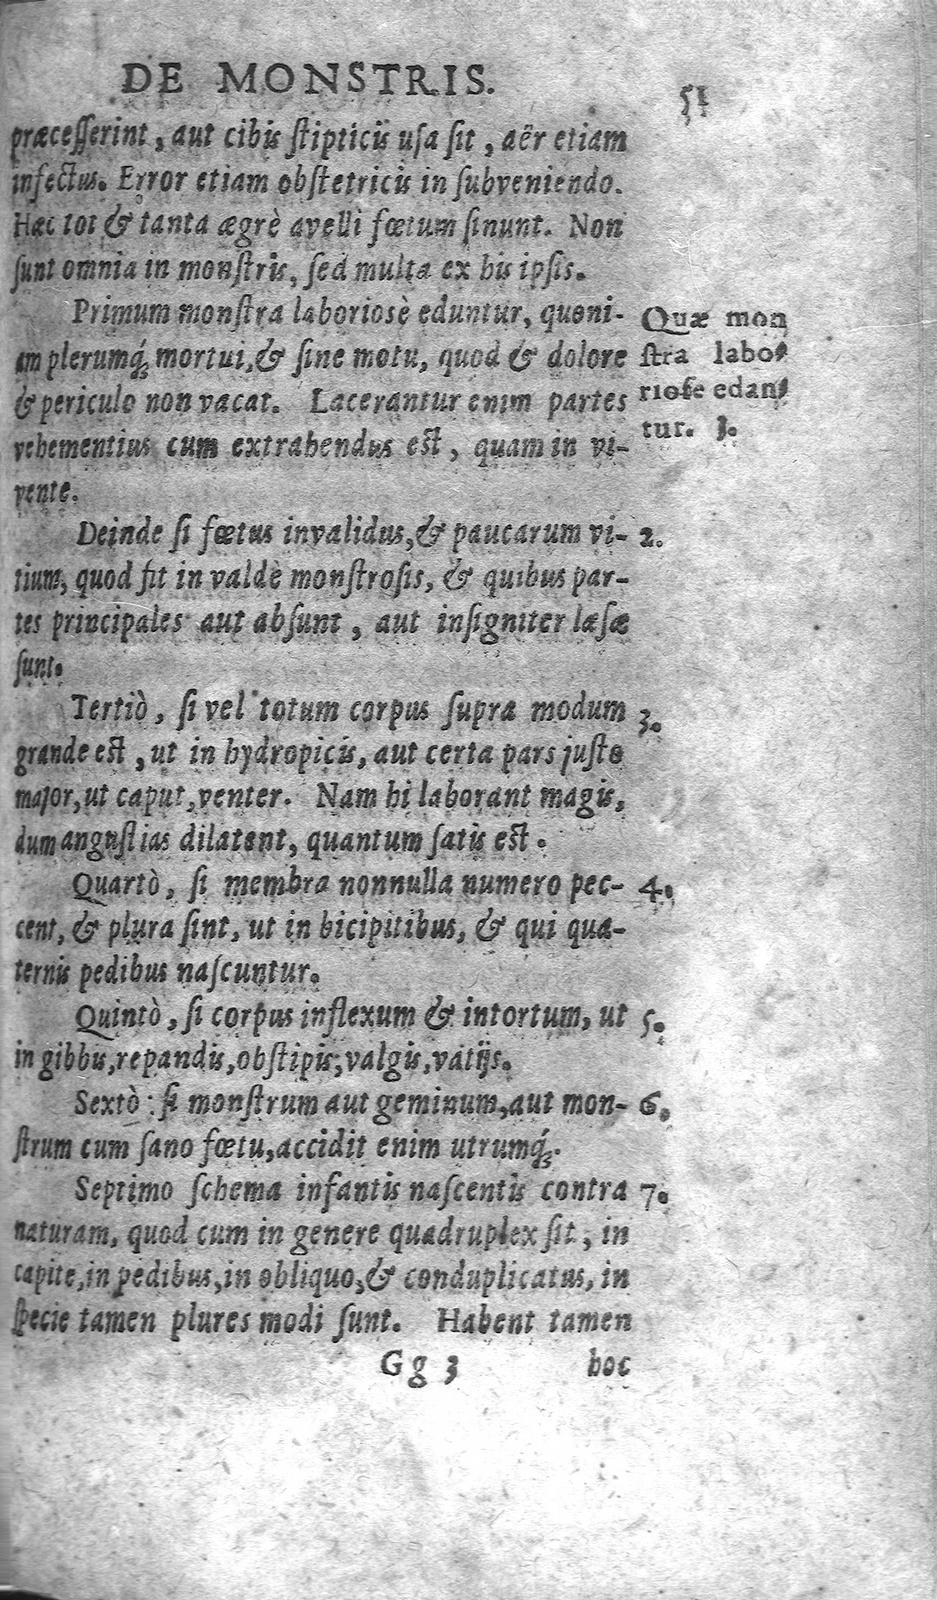 DE MONSTRIS.
51
præcesserint, aut cibis stipticis usa sit, aër etiam
infectus. Error etiam obstetricis in subveniendo.
Hæc tot & tanta ægrè avelli fœtum sinunt. Non
sunt omnia in monstris, sed multa ex his ipsis.
Primum monstra laboriosè eduntur, quoni-
am plerumq́; mortui, & sine motu, quod & dolore
& periculo non vacat. Lacerantur enim partes
vehementius cum extrahendus est, quam in vi-
vente.
Quæ mon
stra labo-
riose edan-
tur. 1.
Deinde si fœtus invalidus, & paucarum vi- 2.
rium, quod fit in valdè monstrosis, & quibus par-
tes principales aut absunt, aut insigniter læsæ
sunt.
Tertiò, si vel totum corpus supra modum 3.
grande est, ut in hydropicis, aut certa pars justo
major, ut caput, venter. Nam hi laborant magis,
dum angustias dilatent, quantum satis est.
Quartò, si membra nonnulla numero pec- 4.
cent, & plura sint, ut in bicipitibus, & qui qua-
ternis pedibus nascuntur.
Quintò, si corpus inflexum & intortum, ut 5.
in gibbis, repandis, obstipis, valgis, vatijs.
Sextò: si monstrum aut geminum, aut mon- 6.
strum cum sano fœtu, accidit enim utrumq́;.
Septimo schema infantis nascentis contra 7.
naturam, quod cum in genere quadruplex sit, in
capite, in pedibus, in obliquo, & conduplicatus, in
specie tamen plures modi sunt. Habent tamen
Gg 3 hoc